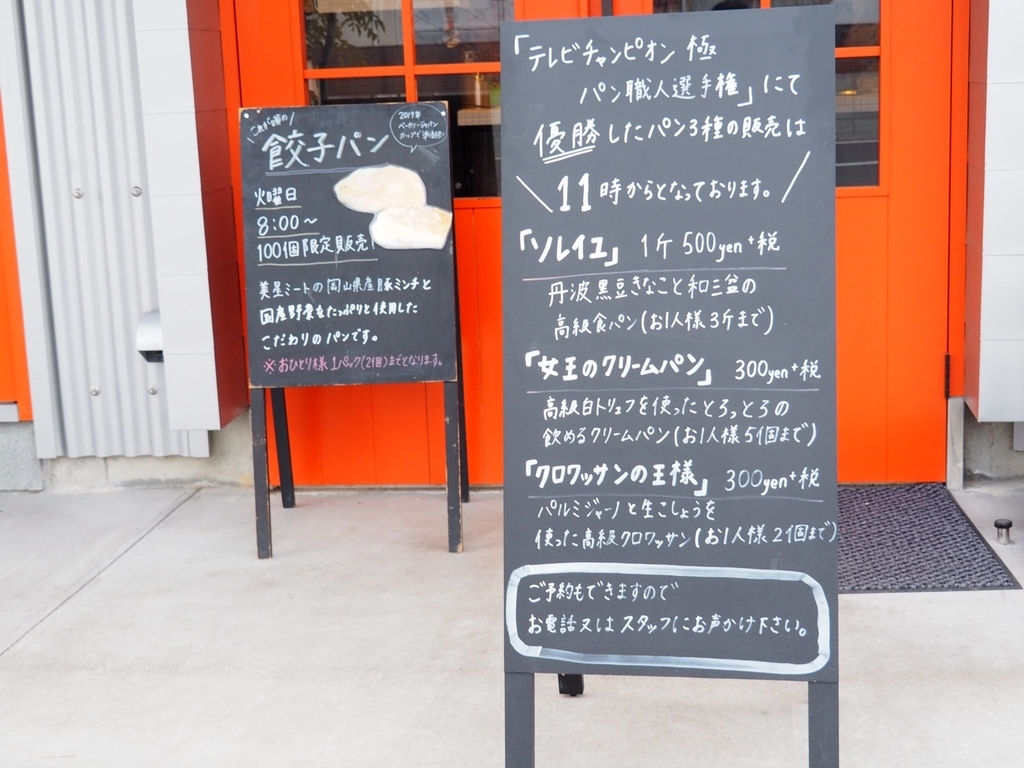 これが噂の
餃子パン
2017年
ベーカリージャパン
カップで
火曜日
8:00～
100個限定販売!
美星ミートの岡山県産豚ミンチと
国産野菜をたっぷりと使用した
こだわりのパンです。
※おひとり様1パック(2個)までとなります。
「テレビチャンピオン 極
パン職人選手権」にて
優勝したパン3種の販売は
11時からとなっております。
「ソレイユ」 1斤 500yen+税
丹波黒豆きなこと和三盆の
高級食パン(お1人様3斤まで)
「女王のクリームパン」 300yen+税
高級白トリュフを使ったとろっとろの
飲めるクリームパン(お1人様5個まで)
「クロワッサンの王様」 300yen+税
パルミジャーノと生こしょうを
使った高級クロワッサン(お1人様2個まで)
ご予約もできますので
お電話又はスタッフにお声かけ下さい。